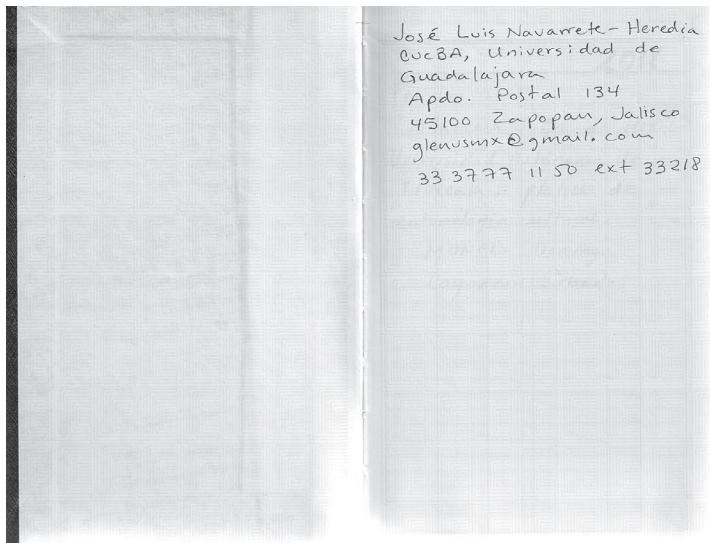 José Luis Navarrete-Heredia
CUCBA, Universidad de
Guadalajara
Apdo. Postal 134
45100 Zapopan, Jalisco
glenusmx@gmail.com
33 3777 11 50 ext 33218